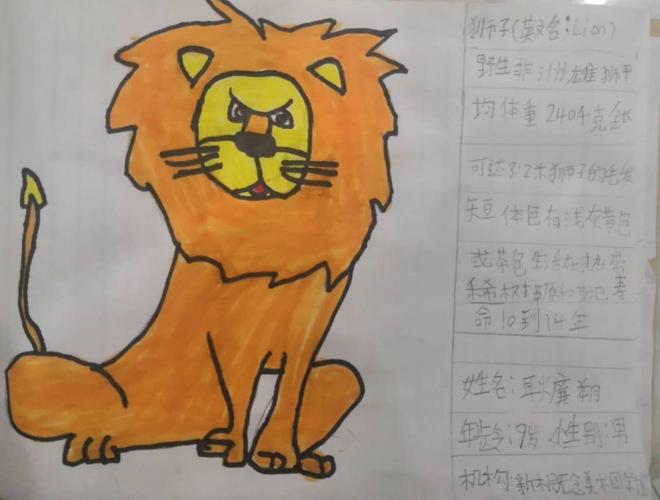 狮子(英文名:Lion)
野生非洲雄狮平
均体重240千克全长
可达3.2米狮子的毛发
短体色有浅灰黄色
或茶色生活在热带
稀树草原和草地寿
命10到14年
姓名:耿赓翔
年龄:9岁 性别:男
机构:新